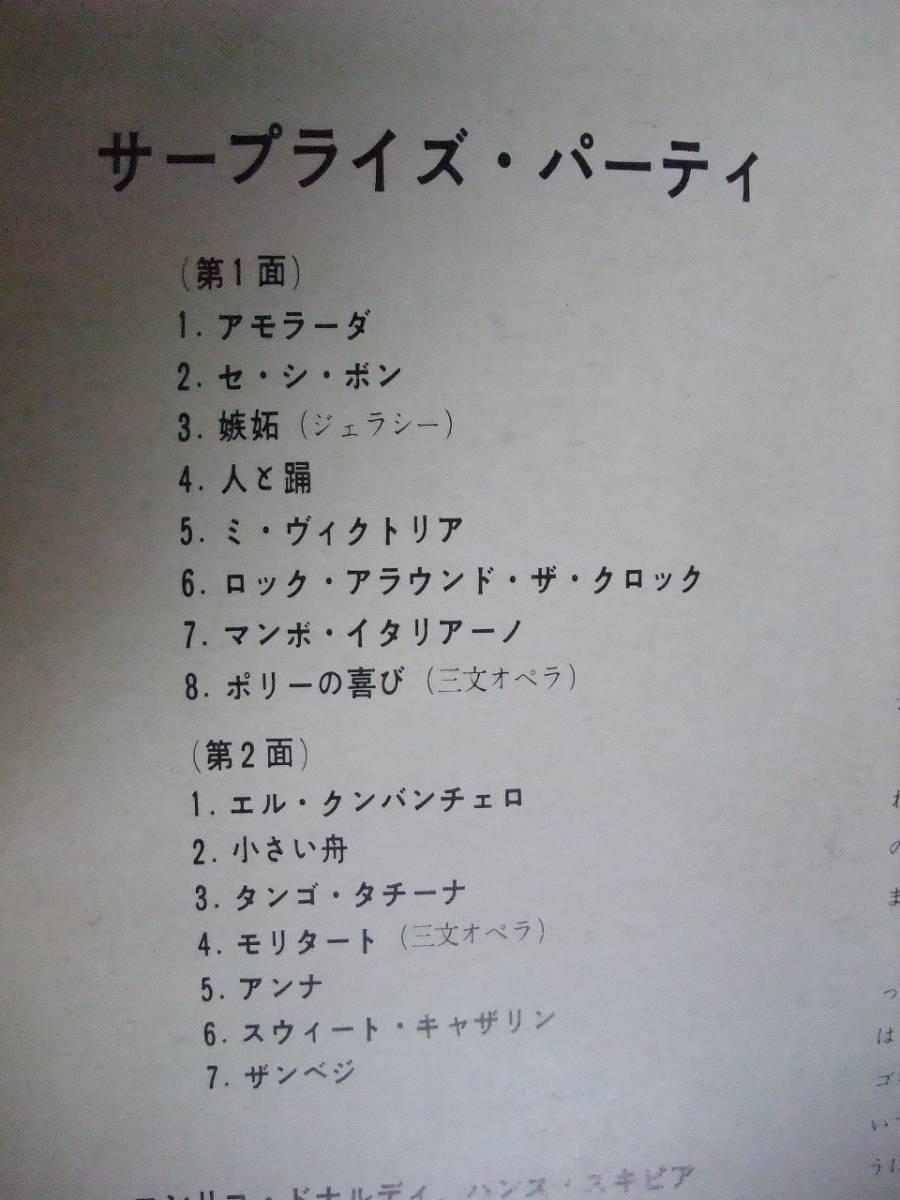 サープライズ・パーティ
(第1面)
1. アモラーダ
2. セ・シ・ボン
3. 嫉妬 (ジェラシー)
4. 人と踊
5. ミ・ヴィクトリア
6. ロック・アラウンド・ザ・クロック
7. マンボ・イタリアーノ
8. ポリーの喜び (三文オペラ)
(第2面)
1. エル・クンバンチェロ
2. 小さい舟
3. タンゴ・タチーナ
4. モリタート (三文オペラ)
5. アンナ
6. スウィート・キャザリン
7. ザンベジ
エンリコ・ドナルディ、ハンス・スキピア
の
ま
っ
は
ゴ
い